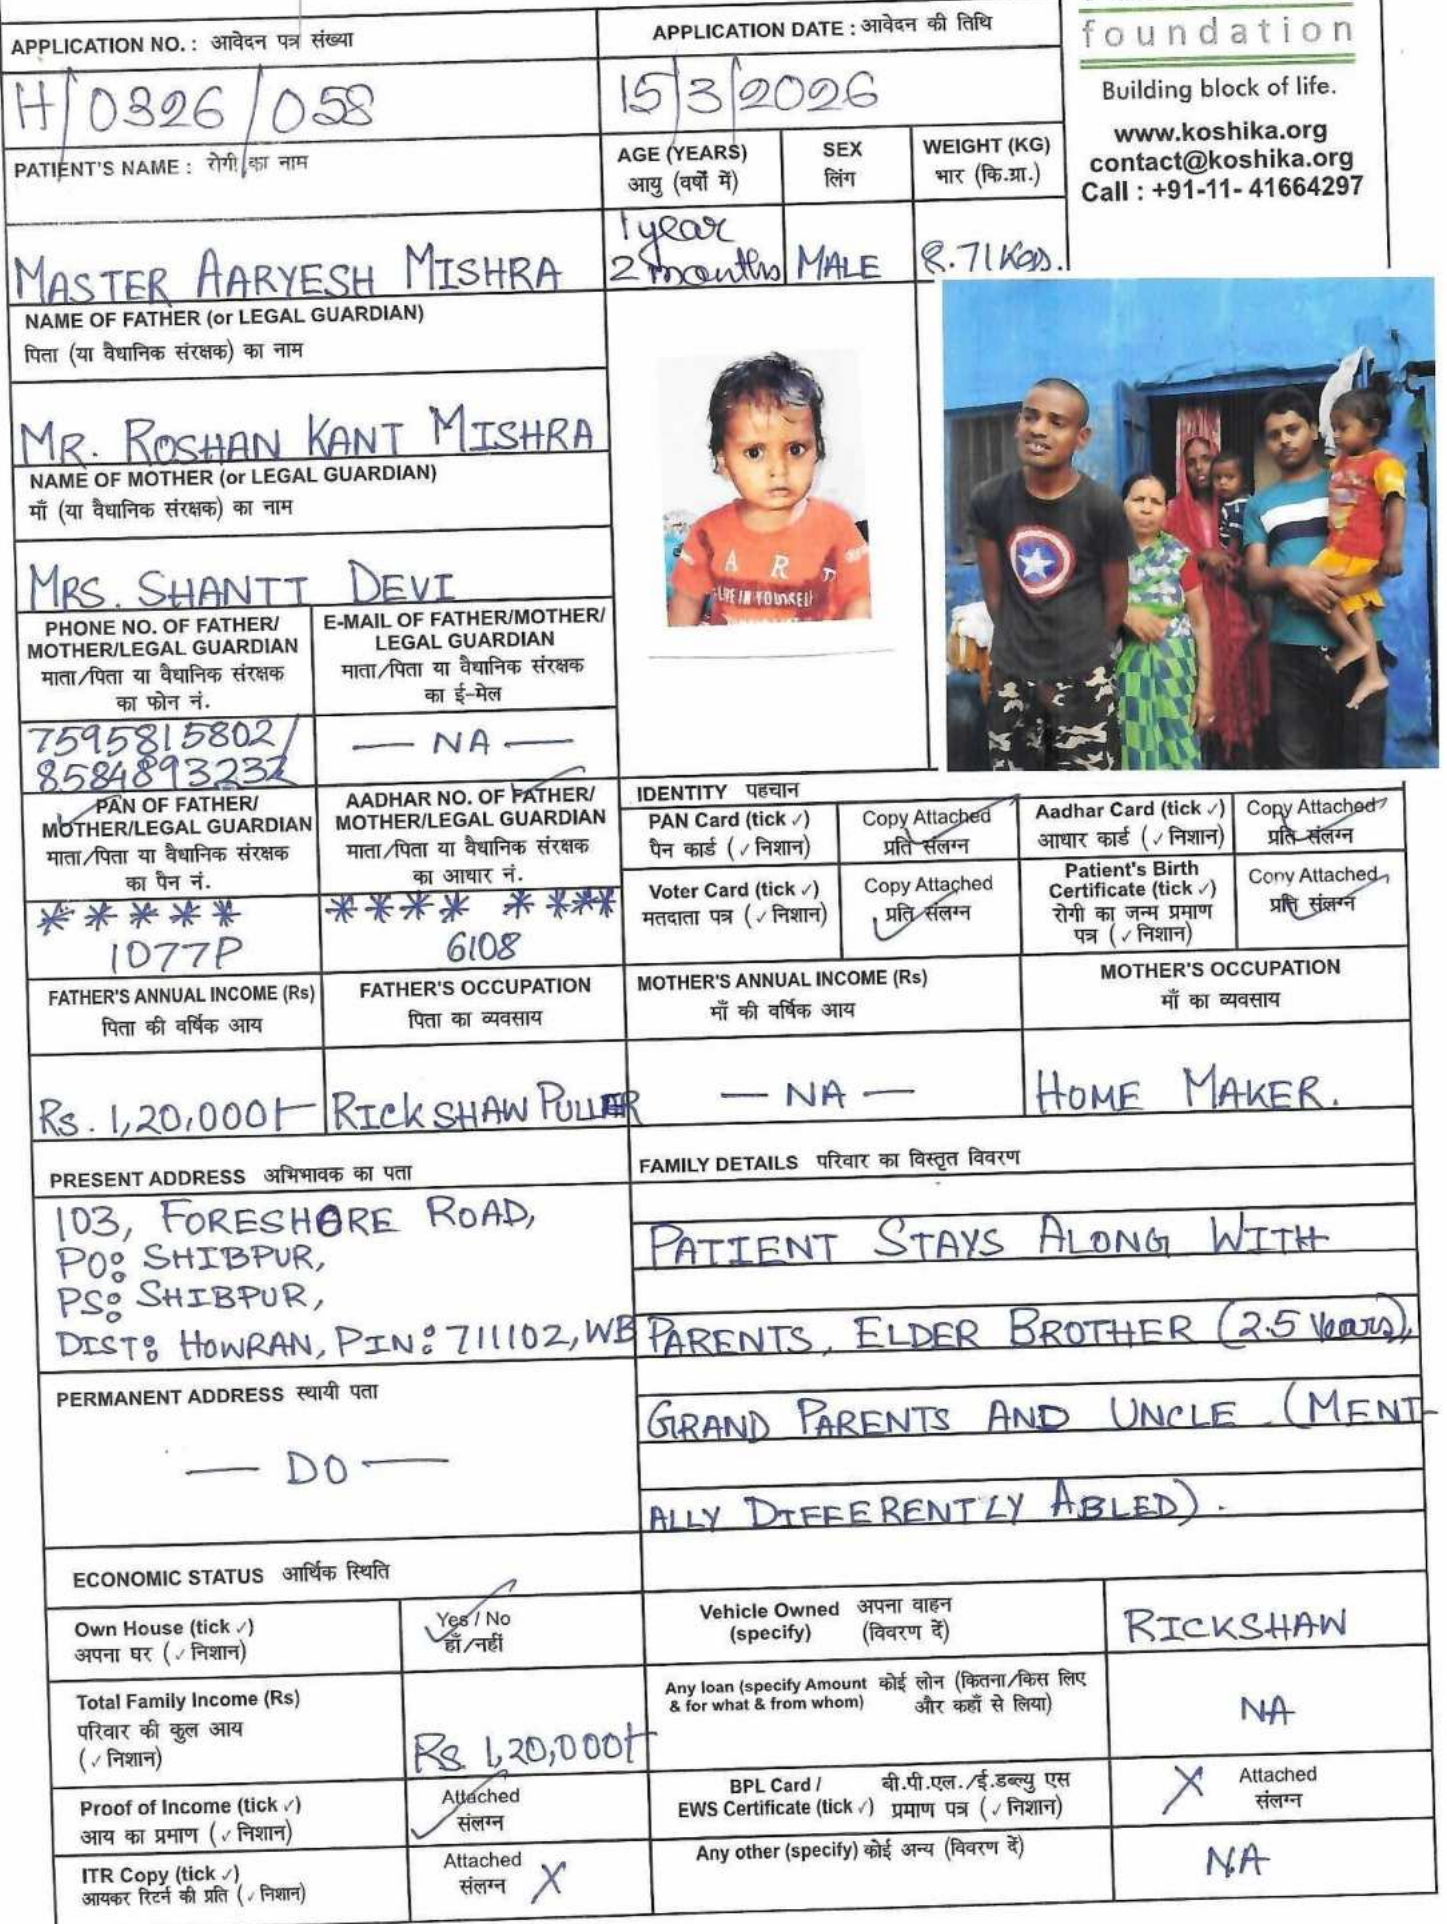 APPLICATION NO. : आवेदन पत्र संख्या
H/0326/058
APPLICATION DATE : आवेदन की तिथि
15/3/2026
foundation
Building block of life.
www.koshika.org
contact@koshika.org
Call : +91-11- 41664297
PATIENT'S NAME : रोगी का नाम
MASTER AARYESH MISHRA
AGE (YEARS)
आयु (वर्षों में)
1 year
2 months
SEX
लिंग
MALE
WEIGHT (KG)
भार (कि.ग्रा.)
8.71 KGS.
NAME OF FATHER (or LEGAL GUARDIAN)
पिता (या वैधानिक संरक्षक) का नाम
MR. ROSHAN KANT MISHRA
NAME OF MOTHER (or LEGAL GUARDIAN)
माँ (या वैधानिक संरक्षक) का नाम
MRS. SHANTI DEVI
A R T
LIVE IN YOURSELF
PHONE NO. OF FATHER/
MOTHER/LEGAL GUARDIAN
माता/पिता या वैधानिक संरक्षक
का फोन नं.
7595815802/
8584893232
E-MAIL OF FATHER/MOTHER/
LEGAL GUARDIAN
माता/पिता या वैधानिक संरक्षक
का ई-मेल
— NA —
PAN OF FATHER/
MOTHER/LEGAL GUARDIAN
माता/पिता या वैधानिक संरक्षक
का पैन नं.
* * * * *
1077P
AADHAR NO. OF FATHER/
MOTHER/LEGAL GUARDIAN
माता/पिता या वैधानिक संरक्षक
का आधार नं.
**** ****
6108
IDENTITY पहचान
PAN Card (tick ✓)
पैन कार्ड (✓ निशान)
Copy Attached
प्रति संलग्न
Aadhar Card (tick ✓)
आधार कार्ड (✓ निशान)
Copy Attached
प्रति संलग्न
Voter Card (tick ✓)
मतदाता पत्र (✓ निशान)
Copy Attached
प्रति संलग्न
Patient's Birth
Certificate (tick ✓)
रोगी का जन्म प्रमाण
पत्र (✓ निशान)
Copy Attached
प्रति संलग्न
FATHER'S ANNUAL INCOME (Rs)
पिता की वार्षिक आय
Rs. 1,20,000/-
FATHER'S OCCUPATION
पिता का व्यवसाय
RICKSHAW PULLER
MOTHER'S ANNUAL INCOME (Rs)
माँ की वार्षिक आय
— NA —
MOTHER'S OCCUPATION
माँ का व्यवसाय
HOME MAKER.
PRESENT ADDRESS अभिभावक का पता
103, FORESHORE ROAD,
PO: SHIBPUR,
PS: SHIBPUR,
DIST: HOWRAH, PIN: 711102, WB
PERMANENT ADDRESS स्थायी पता
— DO —
FAMILY DETAILS परिवार का विस्तृत विवरण
PATIENT STAYS ALONG WITH
PARENTS, ELDER BROTHER (2.5 Years),
GRAND PARENTS AND UNCLE (MENT-
ALLY DIFFERENTLY ABLED).
ECONOMIC STATUS आर्थिक स्थिति
Own House (tick ✓)
अपना घर (✓ निशान)
Yes / No
हाँ/नहीं
Vehicle Owned अपना वाहन
(specify) (विवरण दें)
RICKSHAW
Total Family Income (Rs)
परिवार की कुल आय
(✓ निशान)
Rs. 1,20,000/-
Any loan (specify Amount कोई लोन (कितना/किस लिए
& for what & from whom) और कहाँ से लिया)
NA
Proof of Income (tick ✓)
आय का प्रमाण (✓ निशान)
Attached
संलग्न
BPL Card / बी.पी.एल./ई.डब्ल्यु एस
EWS Certificate (tick ✓) प्रमाण पत्र (✓ निशान)
X Attached
संलग्न
ITR Copy (tick ✓)
आयकर रिटर्न की प्रति (✓ निशान)
Attached
संलग्न X
Any other (specify) कोई अन्य (विवरण दें)
NA